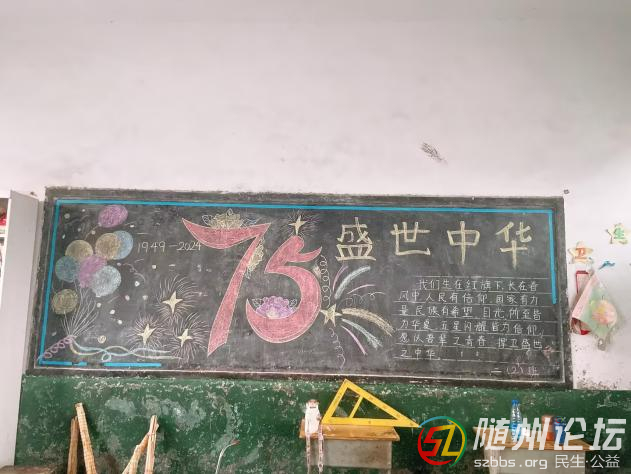 1949-2024
75
盛世中华
我们生在红旗下,长在春
风中,人民有信仰,国家有力
量,民族有希望,目光所至皆
为华夏,五星闪耀皆为信仰,
愿以吾辈之青春 捍卫盛世
之中华。
二(2)班
随州论坛
szbbs.org 民生·公益